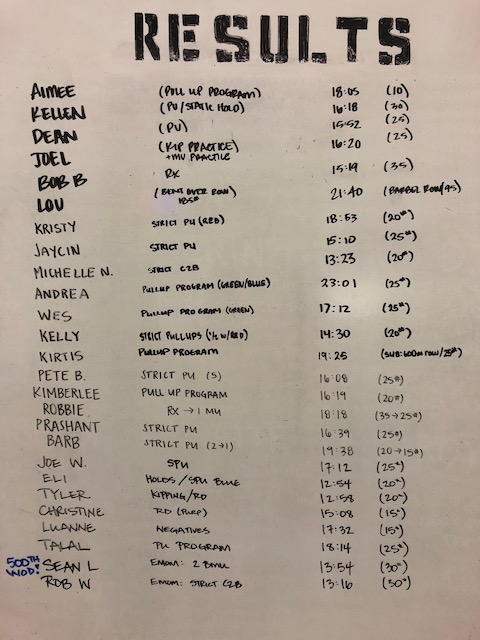 RESULTS
AIMEE (PULL UP PROGRAM) 18:05 (10)
KELLEN (PU/STATIC HOLD) 16:18 (30)
DEAN (PU) 15:52 (25)
JOEL (KIP PRACTICE) 16:20 (25)
+MU PRACTICE
BOB B RX 15:19 (35)
LOU (BENT OVER ROW) 21:40 (BARBELL ROW/95)
185#
KRISTY STRICT PU (RED) 18:53 (20#)
JAYCIN STRICT PU 15:10 (25#)
MICHELLE N. STRICT C2B 13:23 (20#)
ANDREA PULLUP PROGRAM (GREEN/BLUE) 23:01 (25#)
WES PULLUP PROGRAM (GREEN) 17:12 (25#)
KELLY STRICT PULLUPS (1/2 W/RED) 14:30 (20#)
KIRTIS PULLUP PROGRAM 19:25 (SUB:600m ROW/25#)
PETE B. STRICT PU (5) 16:08 (25#)
KIMBERLEE PULL UP PROGRAM 16:19 (20#)
ROBBIE RX → 1 MU 18:18 (35→25#)
PRASHANT STRICT PU 16:39 (25#)
BARB STRICT PU (2→1) 19:38 (20→15#)
JOE W. SPU 17:12 (25#)
ELI HOLDS/SPU BLUE 12:54 (20#)
TYLER KIPPING/RD 12:58 (20#)
CHRISTINE RD (PURP) 15:08 (15#)
LUANNE NEGATIVES 17:32 (15#)
TALAL PU PROGRAM 18:14 (25#)
500TH WOD! SEAN L EMOM: 2 BMU 13:54 (30#)
ROB W EMOM: STRICT C2B 13:16 (30#)